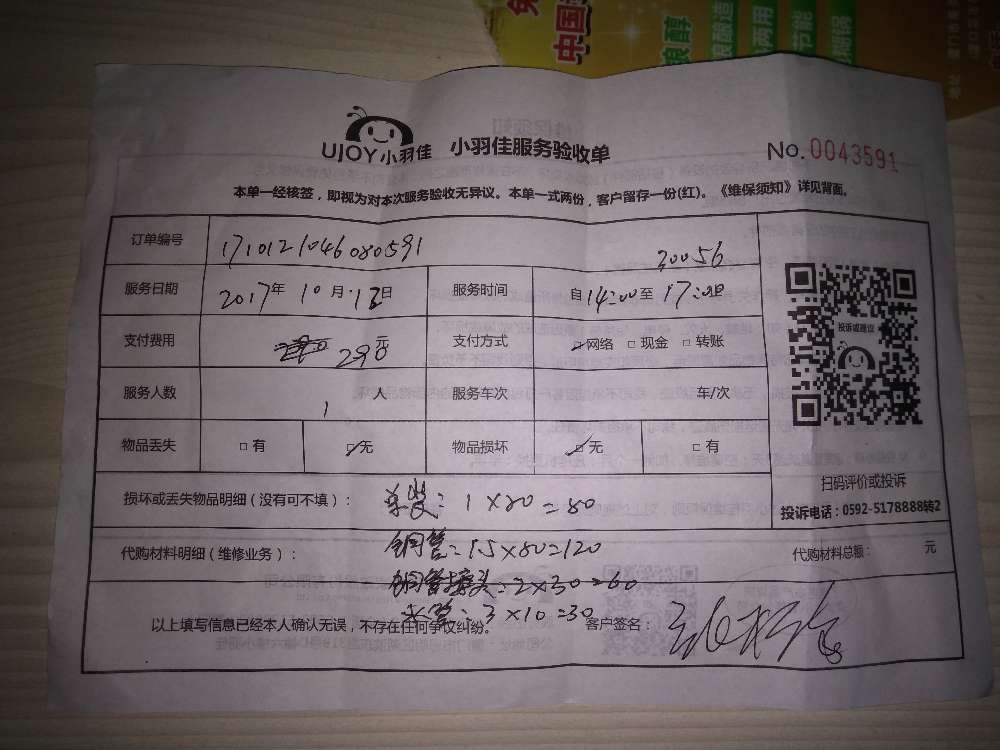 中国
粮醇
粮酿造
两用
节能
UJOY小羽佳 小羽佳服务验收单 No. 0043591
本单一经核签，即视为对本次服务验收无异议。本单一式两份，客户留存一份(红)。《维保须知》详见背面。
订单编号 1710121046080591 30056
服务日期 2017年 10月 13日 服务时间 自14:00至17:00
支付费用 290元 支付方式 网络 □ 现金 □ 转账
服务人数 1人 服务车次 车/次
物品丢失 □ 有 □ 无 物品损坏 □ 无 □ 有
投诉或建议
扫码评价或投诉
投诉电话：0592-5178888转2
损坏或丢失物品明细（没有可不填）： 1×80=80
代购材料明细（维修业务）： 铜管=1.5×80=120
代购材料总额： 元
铜管接头：2×30=60
3×10=30
以上填写信息已经本人确认无误，不存在任何争议纠纷。 客户签名：